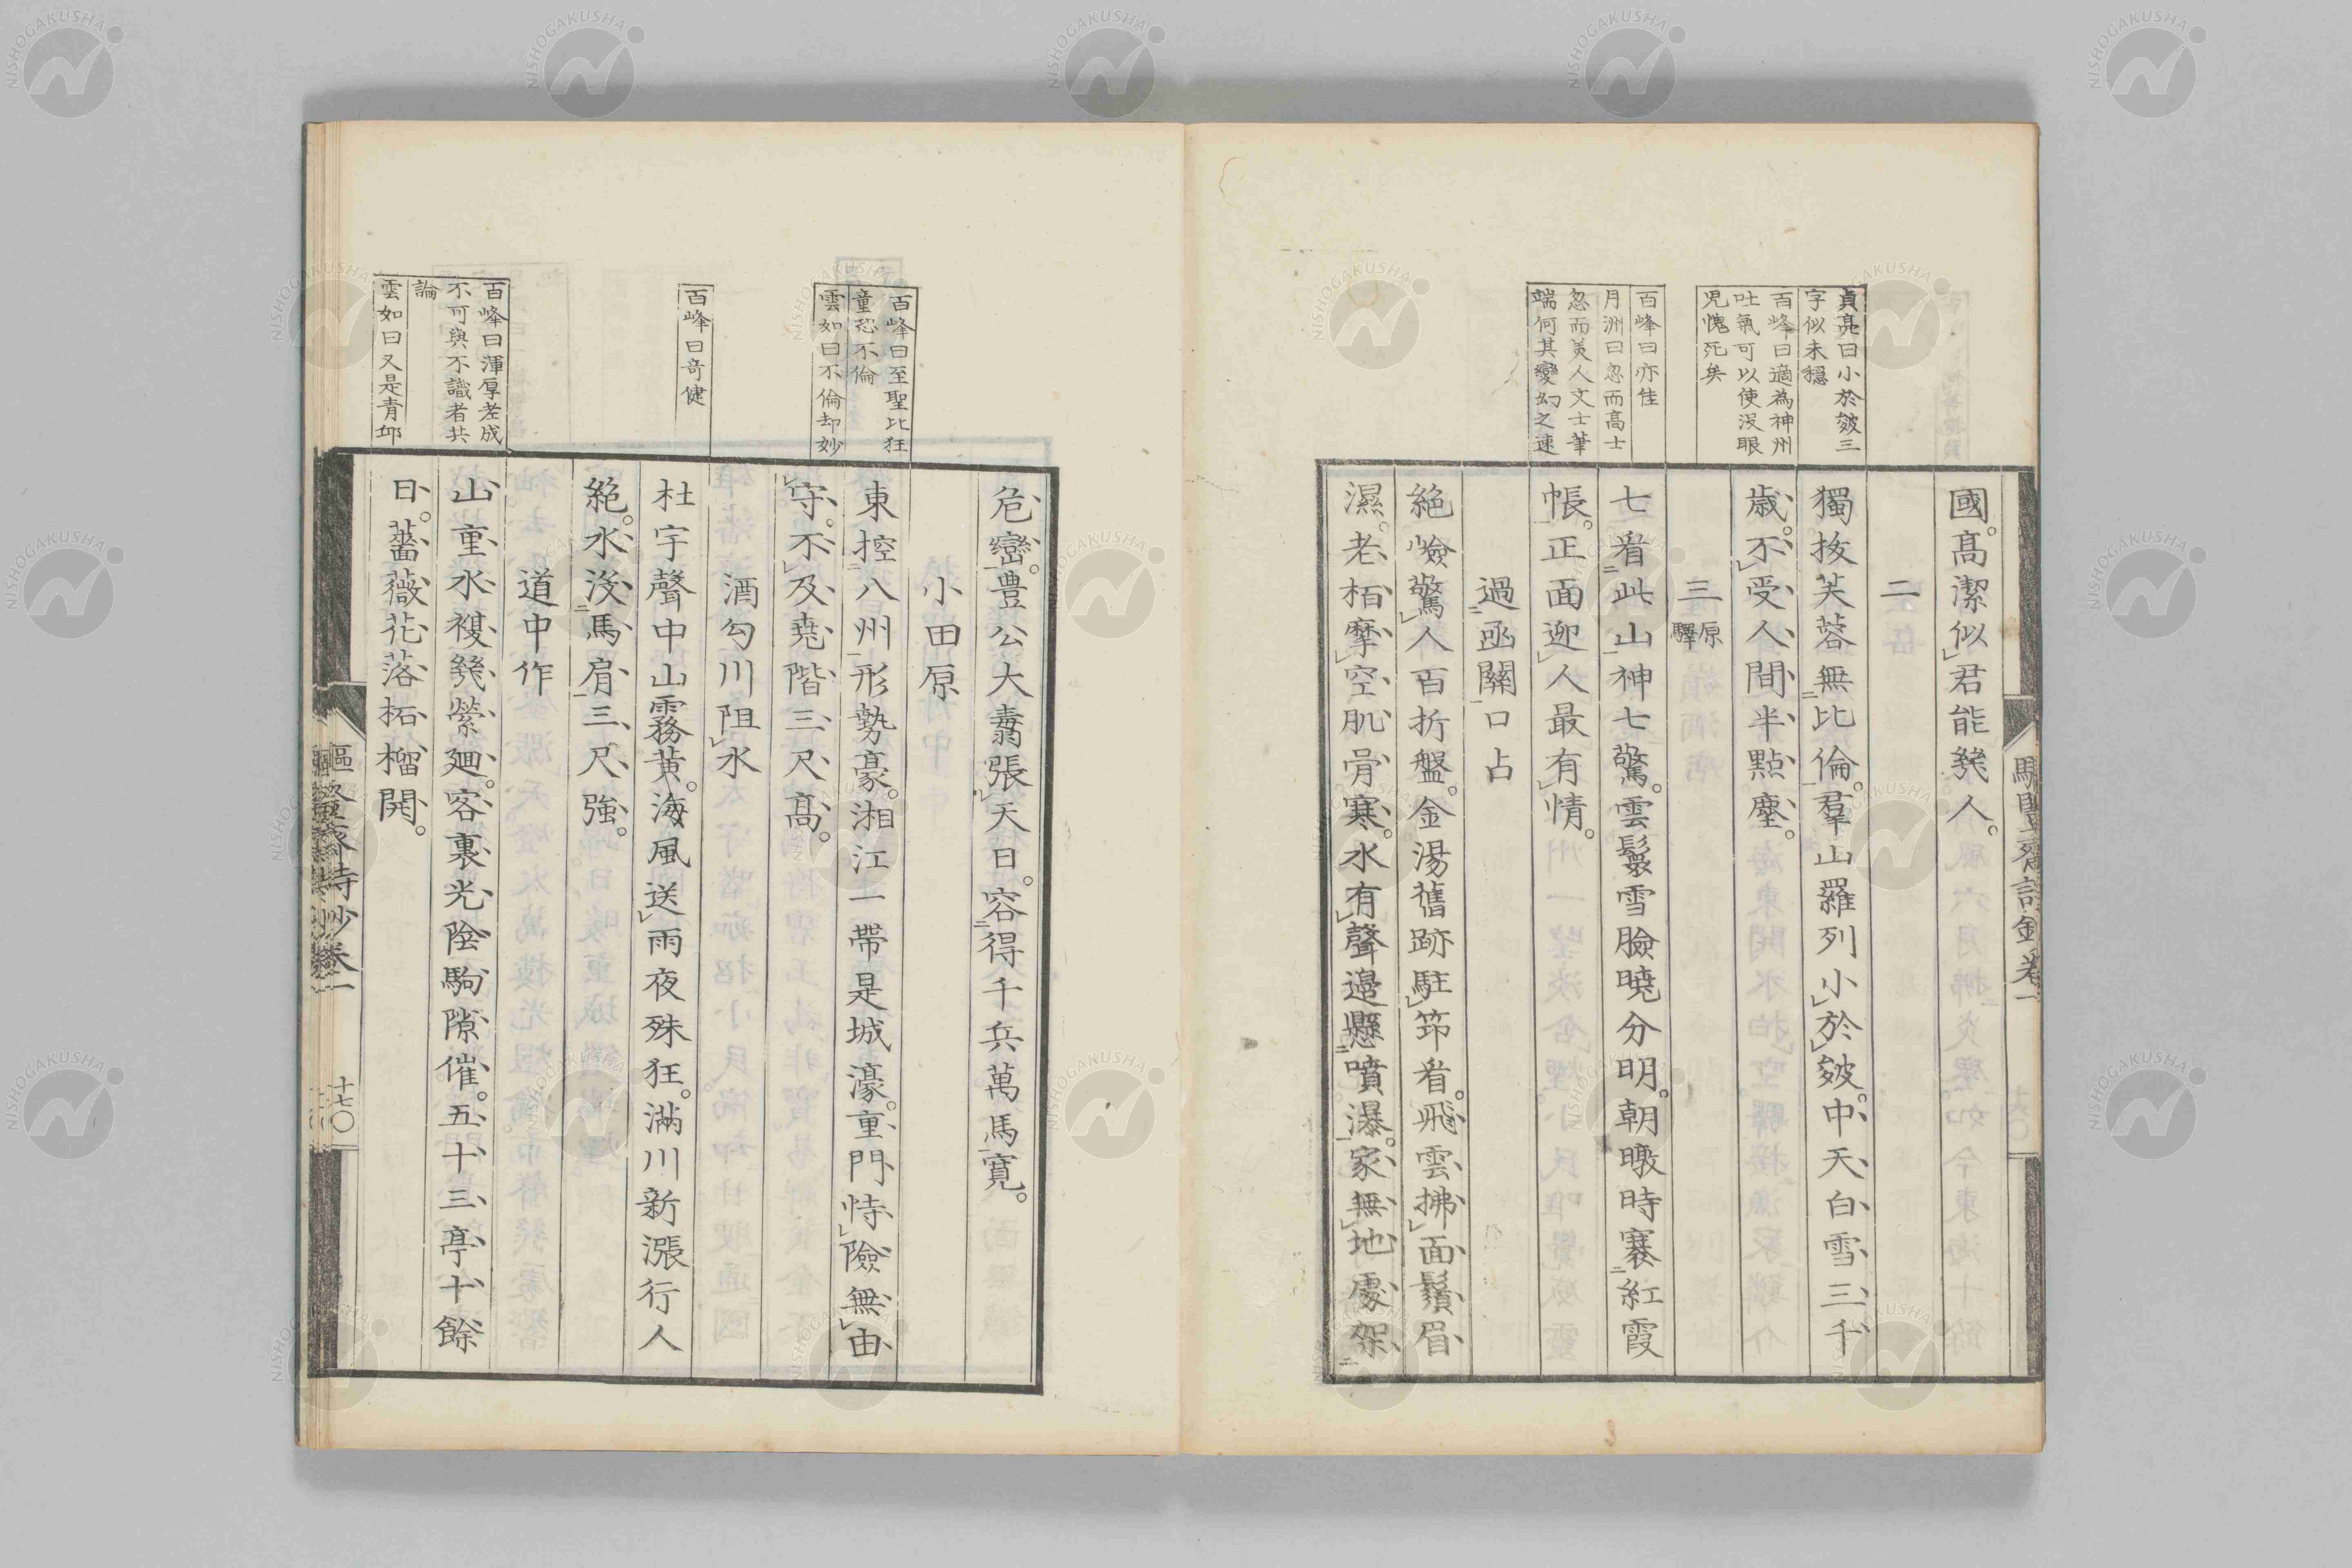 貞亮曰小於皴三
字似未穩
百峰曰適為神州
吐氣可以使沒眼
児愧死矣
百峰曰亦佳
月洲曰忽而高士
忽而美人文士筆
端何其變幻之速
國。高潔似君能幾人。
二
獨抜芙蓉無比倫。羣山羅列小於皴。中天白雪三千
歳。不受人間半點塵。
三 原驛
七看此山神七驚。雲鬟雪臉曉分明。朝暾時褰紅霞
帳。正面迎人最有情。
過函關口占
絶嶮驚人百折盤。金湯舊跡駐笻看。飛雲拂面鬚眉
濕。老栢摩空肌骨寒。水有聲邉懸噴瀑。家無地處架
百峰曰至聖比狂
童恐不倫
雲如曰不倫却妙
百峰曰奇健
百峰曰渾厚老成
不可與不識者共
論
雲如曰又是青邱
危巒。豊公大纛張天日。容得千兵萬馬寛。
小田原
東控八州形勢豪。湘江一帶是城濠。重門恃險無由
守。不及堯階三尺高。
酒勾川阻水
杜宇聲中山霧黄。海風送雨夜殊狂。滿川新漲行人
絶。水沒馬肩三尺強。
道中作
山重水複幾縈廻。客裏光陰駒隙催。五十三亭十餘
日。薔薇花落柘榴開。
十七
NISHOGAKUSHA